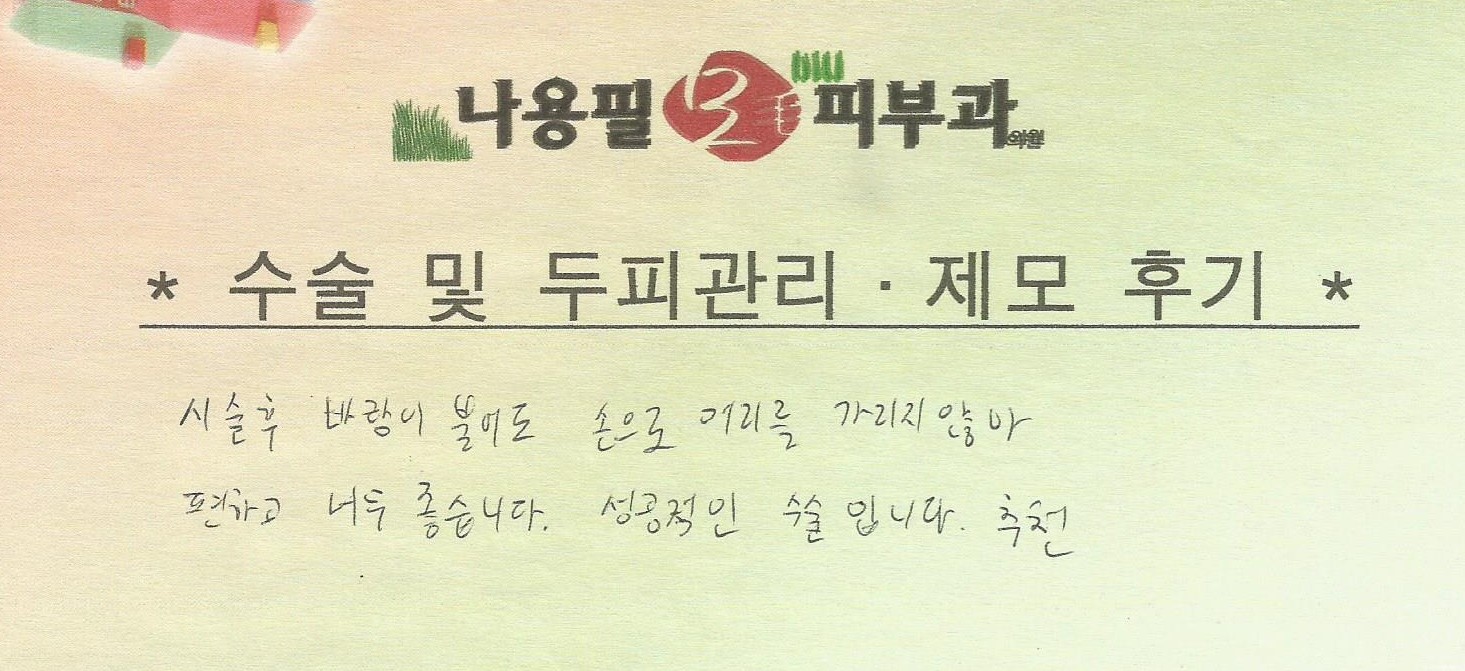 나용필 모 피부과의원
* 수술 및 두피관리 · 제모 후기 *
시술후 바람이 불어도 손으로 머리를 가리지않아
편하고 너무 좋습니다. 성공적인 수술입니다. 추천